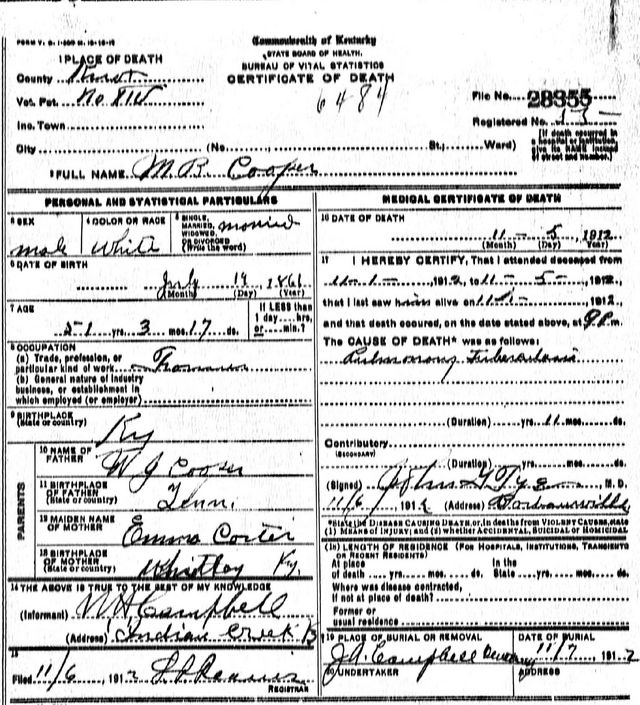 FORM V. S. 1-
Commonwealth of Kentucky
STATE BOARD OF HEALTH.
BUREAU OF VITAL STATISTICS
CERTIFICATE OF DEATH
6484
1 PLACE OF DEATH
County Knox
Vot. Pct. No.
Inc. Town
City (No. St.; Ward)
File No. 28355
Registered No.
[If death occurred in a hospital or institution, give its NAME instead of street and number.]
2 FULL NAME M.B. Cooper
PERSONAL AND STATISTICAL PARTICULARS
3 SEX
male
4 COLOR OR RACE
White
5 SINGLE, MARRIED, WIDOWED, OR DIVORCED (Write the word)
married
6 DATE OF BIRTH
July 19, 1861
(Month) (Day) (Year)
7 AGE
51 yrs. 3 mos. 17 ds.
If LESS than 1 day.... hrs. or.... min.?
8 OCCUPATION
(a) Trade, profession, or particular kind of work
(b) General nature of industry business, or establishment in which employed (or employer)
9 BIRTHPLACE
(State or country)
Ky
PARENTS
10 NAME OF FATHER
W J Cooper
11 BIRTHPLACE OF FATHER
(State or country)
Tenn.
12 MAIDEN NAME OF MOTHER
Emma
13 BIRTHPLACE OF MOTHER
(State or country)
Whitley Ky.
14 THE ABOVE IS TRUE TO THE BEST OF MY KNOWLEDGE
(Informant) Campbell
(Address) Indian Creek Ky
15
Filed 11/6, 1912
REGISTRAR
MEDICAL CERTIFICATE OF DEATH
16 DATE OF DEATH
11 - 5, 1912
(Month) (Day) (Year)
17 I HEREBY CERTIFY, That I attended deceased from
11-1-, 1912, to 11-5-, 1912,
that I last saw him alive on 11-1-, 1912,
and that death occured, on the date stated above, at 9 P.m.
The CAUSE OF DEATH* was as follows:
Pulmonary Tuberculosis
(Duration) yrs. 11 mos. ds.
Contributory
(SECONDARY)
(Duration) yrs. mos. ds.
(Signed) John G Tye M. D.
11/6, 1912 (Address) Barbourville
*State the DISEASE CAUSING DEATH, or, in deaths from VIOLENT CAUSES, state (1) MEANS OF INJURY; and (2) whether ACCIDENTAL, SUICIDAL or HOMICIDAL
18 LENGTH OF RESIDENCE (FOR HOSPITALS, INSTITUTIONS, TRANSIENTS OR RECENT RESIDENTS)
At place of death yrs. mos. ds. In the State yrs. mos. ds.
Where was disease contracted,
if not at place of death?
Former or
usual residence
19 PLACE OF BURIAL OR REMOVAL
J.A. Campbell
DATE OF BURIAL
11/7, 1912
20 UNDERTAKER
ADDRESS